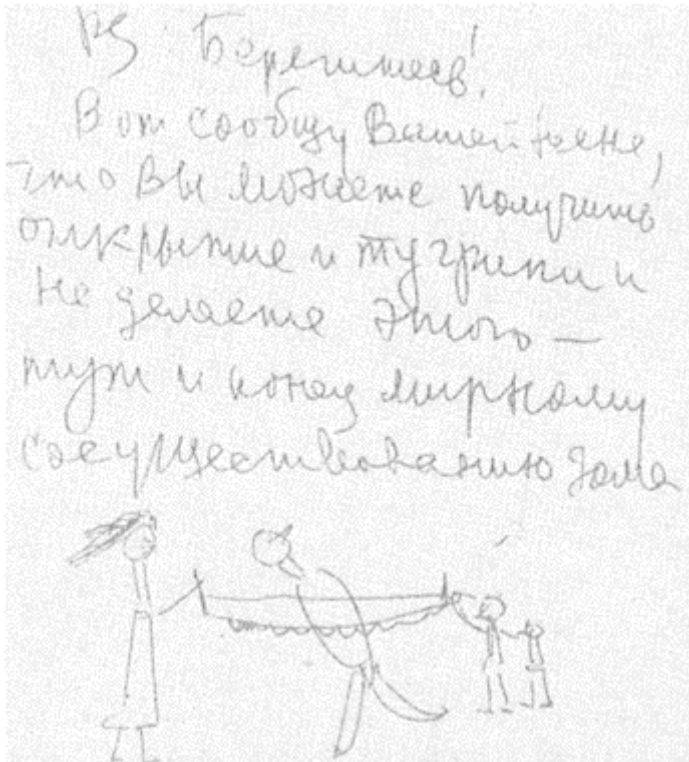 PS: Берегитесь!
Вот сообщу Вашей жене,
что Вы можете получить
открытие и тугрики и
не делаете этого —
тут и конец мирному
сосуществованию дома